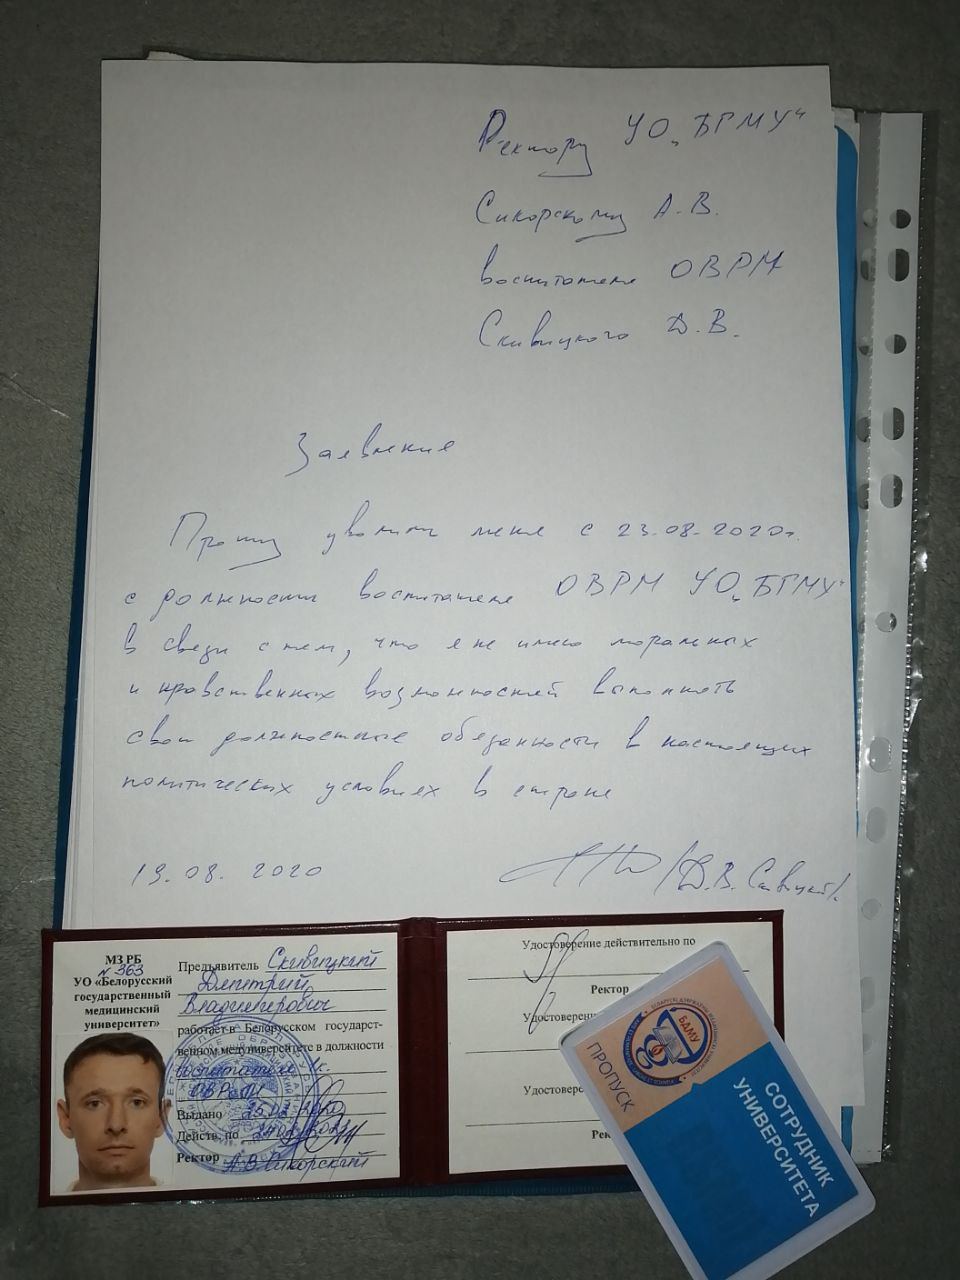 Ректору УО „БГМУ“
Сикорскому А.В.
воспитателя ОВРМ
Скивицкого Д.В.
Заявление
Прошу уволить меня с 23.08.2020г.
с должности воспитателя ОВРМ УО „БГМУ“
в связи с тем, что я не имею моральных
и нравственных возможностей выполнять
свои должностные обязанности в настоящих
политических условиях в стране
19.08.2020
/Д.В. Скивицкий/
МЗ РБ
N 363
УО «Белорусский
государственный
медицинский
университет»
Предъявитель Скивицкий
Дмитрий
Владимирович
работает в Белорусском государст-
венном медуниверситете в должности
воспитателя
Выдано
Действ. по
Ректор А.В.Сикорский
Удостоверение действительно по
Ректор
Удостоверен
Удостовере
Рек
БДМУ
ПРОПУСК
СОТРУДНИК
УНИВЕРСИТЕТА